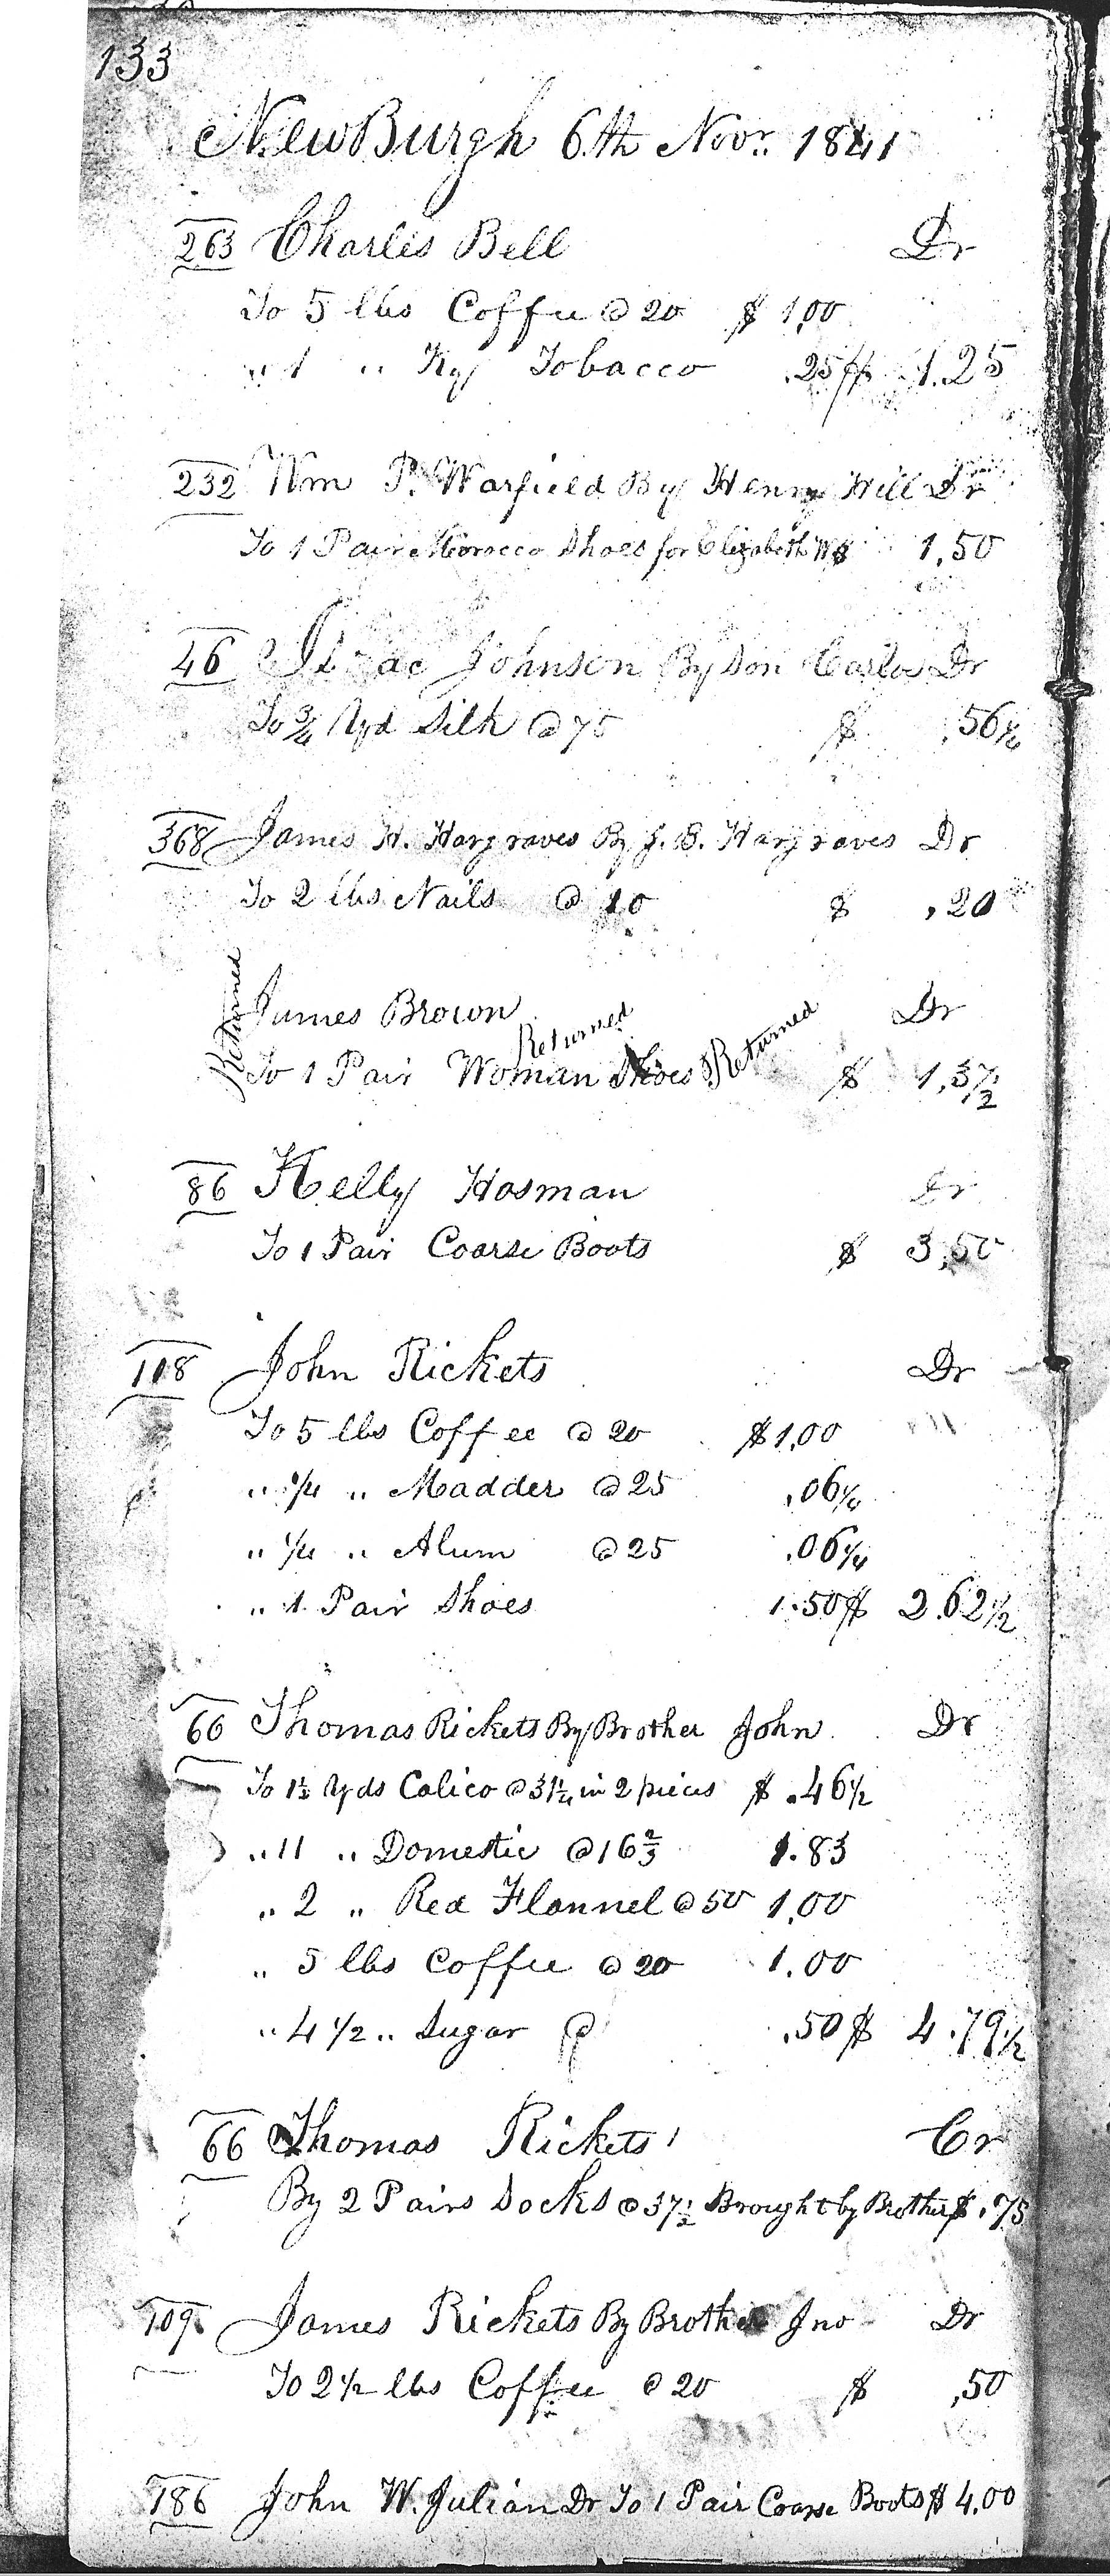 133
NewBurgh 6th Novr. 1841
263 Charles Bell Dr
To 5 lbs Coffee @ 20 $ 1,00
" 1 " Ky Tobacco .25 $ 1.25
232 Wm P. Warfield By Henry Will Dr
To 1 Pair Morocco Shoes for Elizabeth W $ 1,50
46 Isaac Johnson By Son Carlos Dr
To 3/4 Yd Silk @ 75 $ ,56 1/4
368 James H. Hargraves By J. B. Hargraves Dr
To 2 lbs Nails @ 10 $ ,20
Returned
James Brown Dr
Returned
To 1 Pair Woman Shoes Returned $ 1,37 1/2
86 Kelly Hosman Dr
To 1 Pair Coarse Boots $ 3,50
118 John Rickets Dr
To 5 lbs Coffee @ 20 $ 1,00
" 1/4 " Madder @ 25 ,06 1/4
" 1/4 " Alum @ 25 .06 1/4
" 1 Pair Shoes 1.50 $ 2.62 1/2
66 Thomas Rickets By Brother John Dr
To 1 1/2 Yds Calico @ 31 1/4 in 2 pieces $ .46 1/2
" 11 " Domestic @ 16 2/3 1.83
" 2 " Red Flannel @ 50 1,00
" 5 lbs Coffee @ 20 1.00
" 4 1/2 " Sugar @ .50 $ 4.79 1/2
66 Thomas Rickets Cr
By 2 Pairs Socks @ 37 1/2 Brought by Brother $ .75
109 James Rickets By Brother Jno Dr
To 2 1/2 lbs Coffee @ 20 $ ,50
186 John W. Julian Dr To 1 Pair Coarse Boots $ 4.00